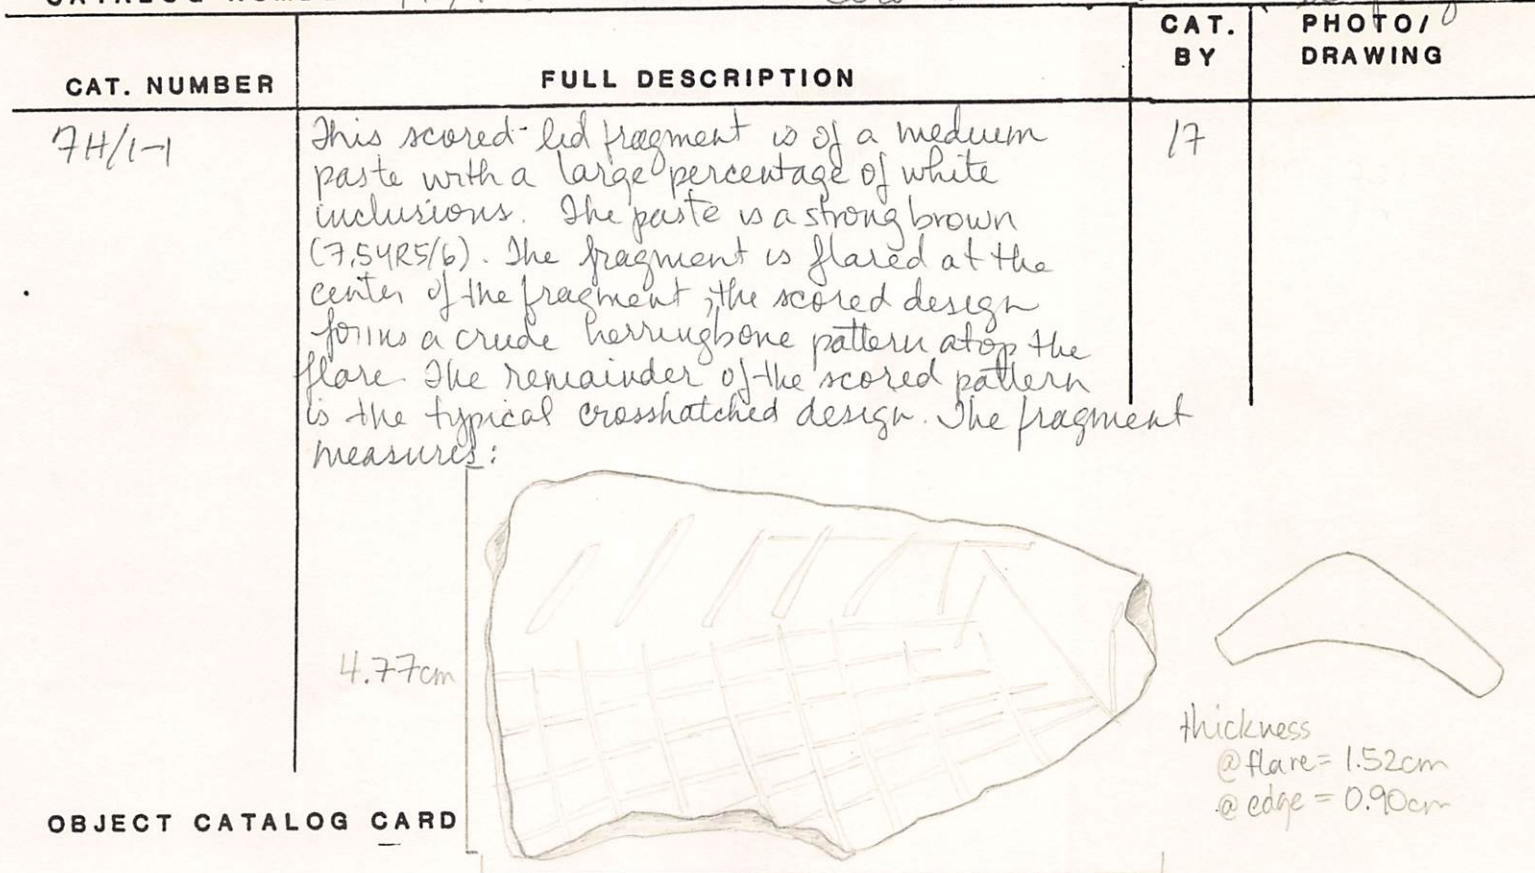 CAT. NUMBER
FULL DESCRIPTION
CAT.
BY
PHOTO/
DRAWING
7H/1-1
17
This scored-lid fragment is of a medium
paste with a large percentage of white
inclusions. The paste is a strong brown
(7.5YR5/6). The fragment is flared at the
center of the fragment; the scored design
forms a crude herringbone pattern atop the
flare. The remainder of the scored pattern
is the typical crosshatched design. The fragment
measures:
4.77cm
thickness
@ flare = 1.52cm
@ edge = 0.90cm
OBJECT CATALOG CARD